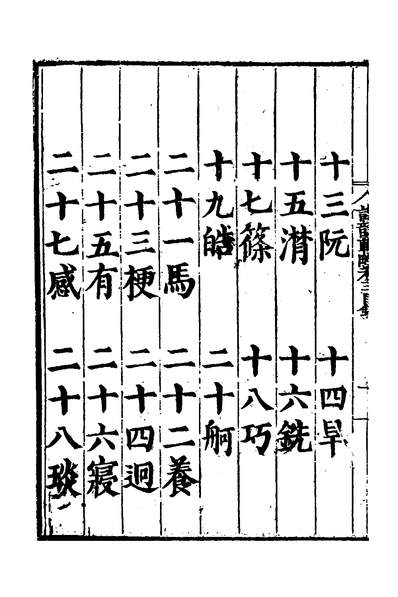 十三阮 十四旱
十五潸 十六銑
十七篠 十八巧
十九皓 二十舸
二十一馬 二十二養
二十三梗 二十四逈
二十五有 二十六寢
二十七感 二十八琰